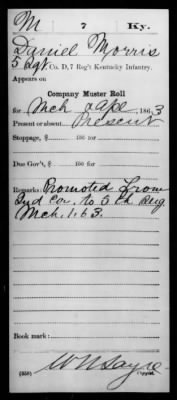 M 7 Ky.
Daniel Morris
5 Sgt, Co. D, 7 Reg't Kentucky Infantry.
Appears on
Company Muster Roll
for Mch & Apl, 1863
Present or absent Present
Stoppage, $ 100 for
Due Gov't, $ 100 for
Remarks: Promoted from
2nd Cor. to 5th Serg
Mch. 1. 63.
Book mark:
W N Sayre
(358) Copyist.